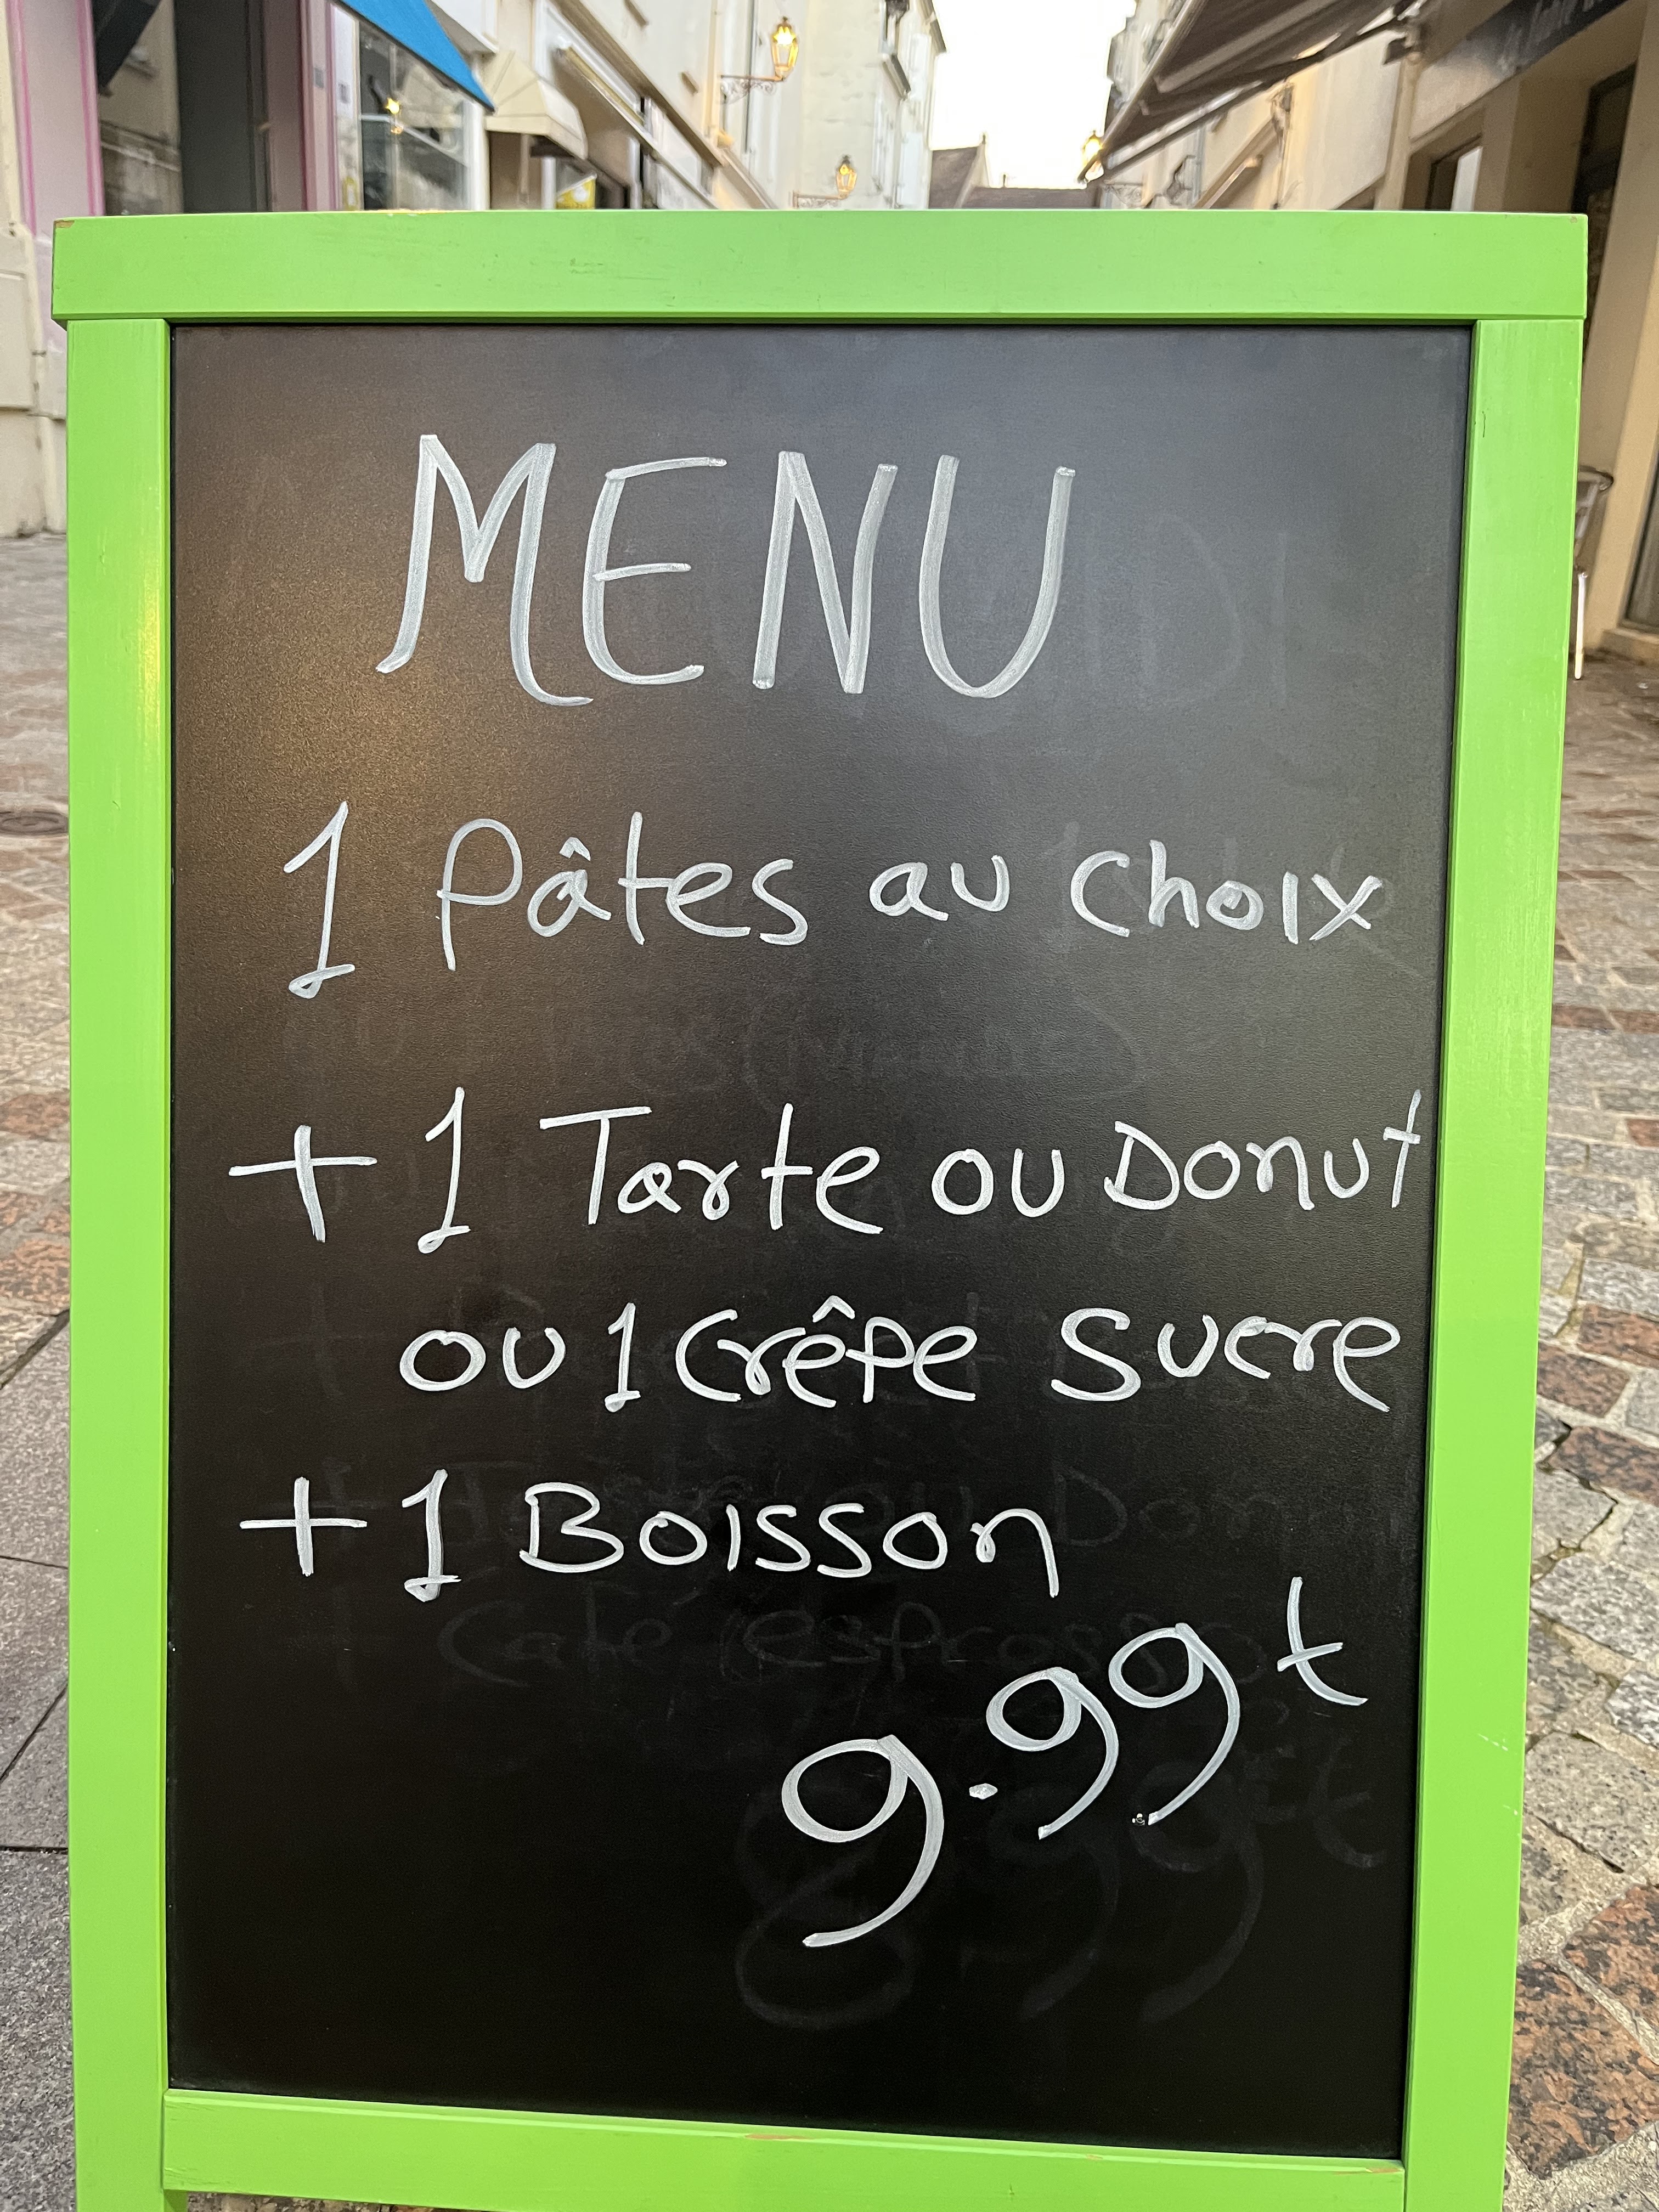 MENU
1 Pâtes au choix
+ 1 Tarte ou Donut
ou 1 Crêpe Sucre
+ 1 Boisson
9.99t